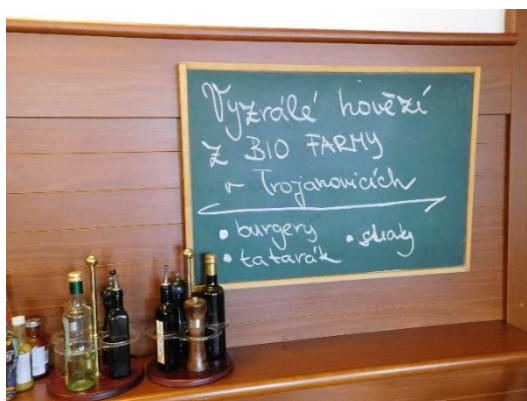 Vyzrálé hovězí
z BIO FARMY
v Trojanovicích
• burgery • steaky
• tatarák